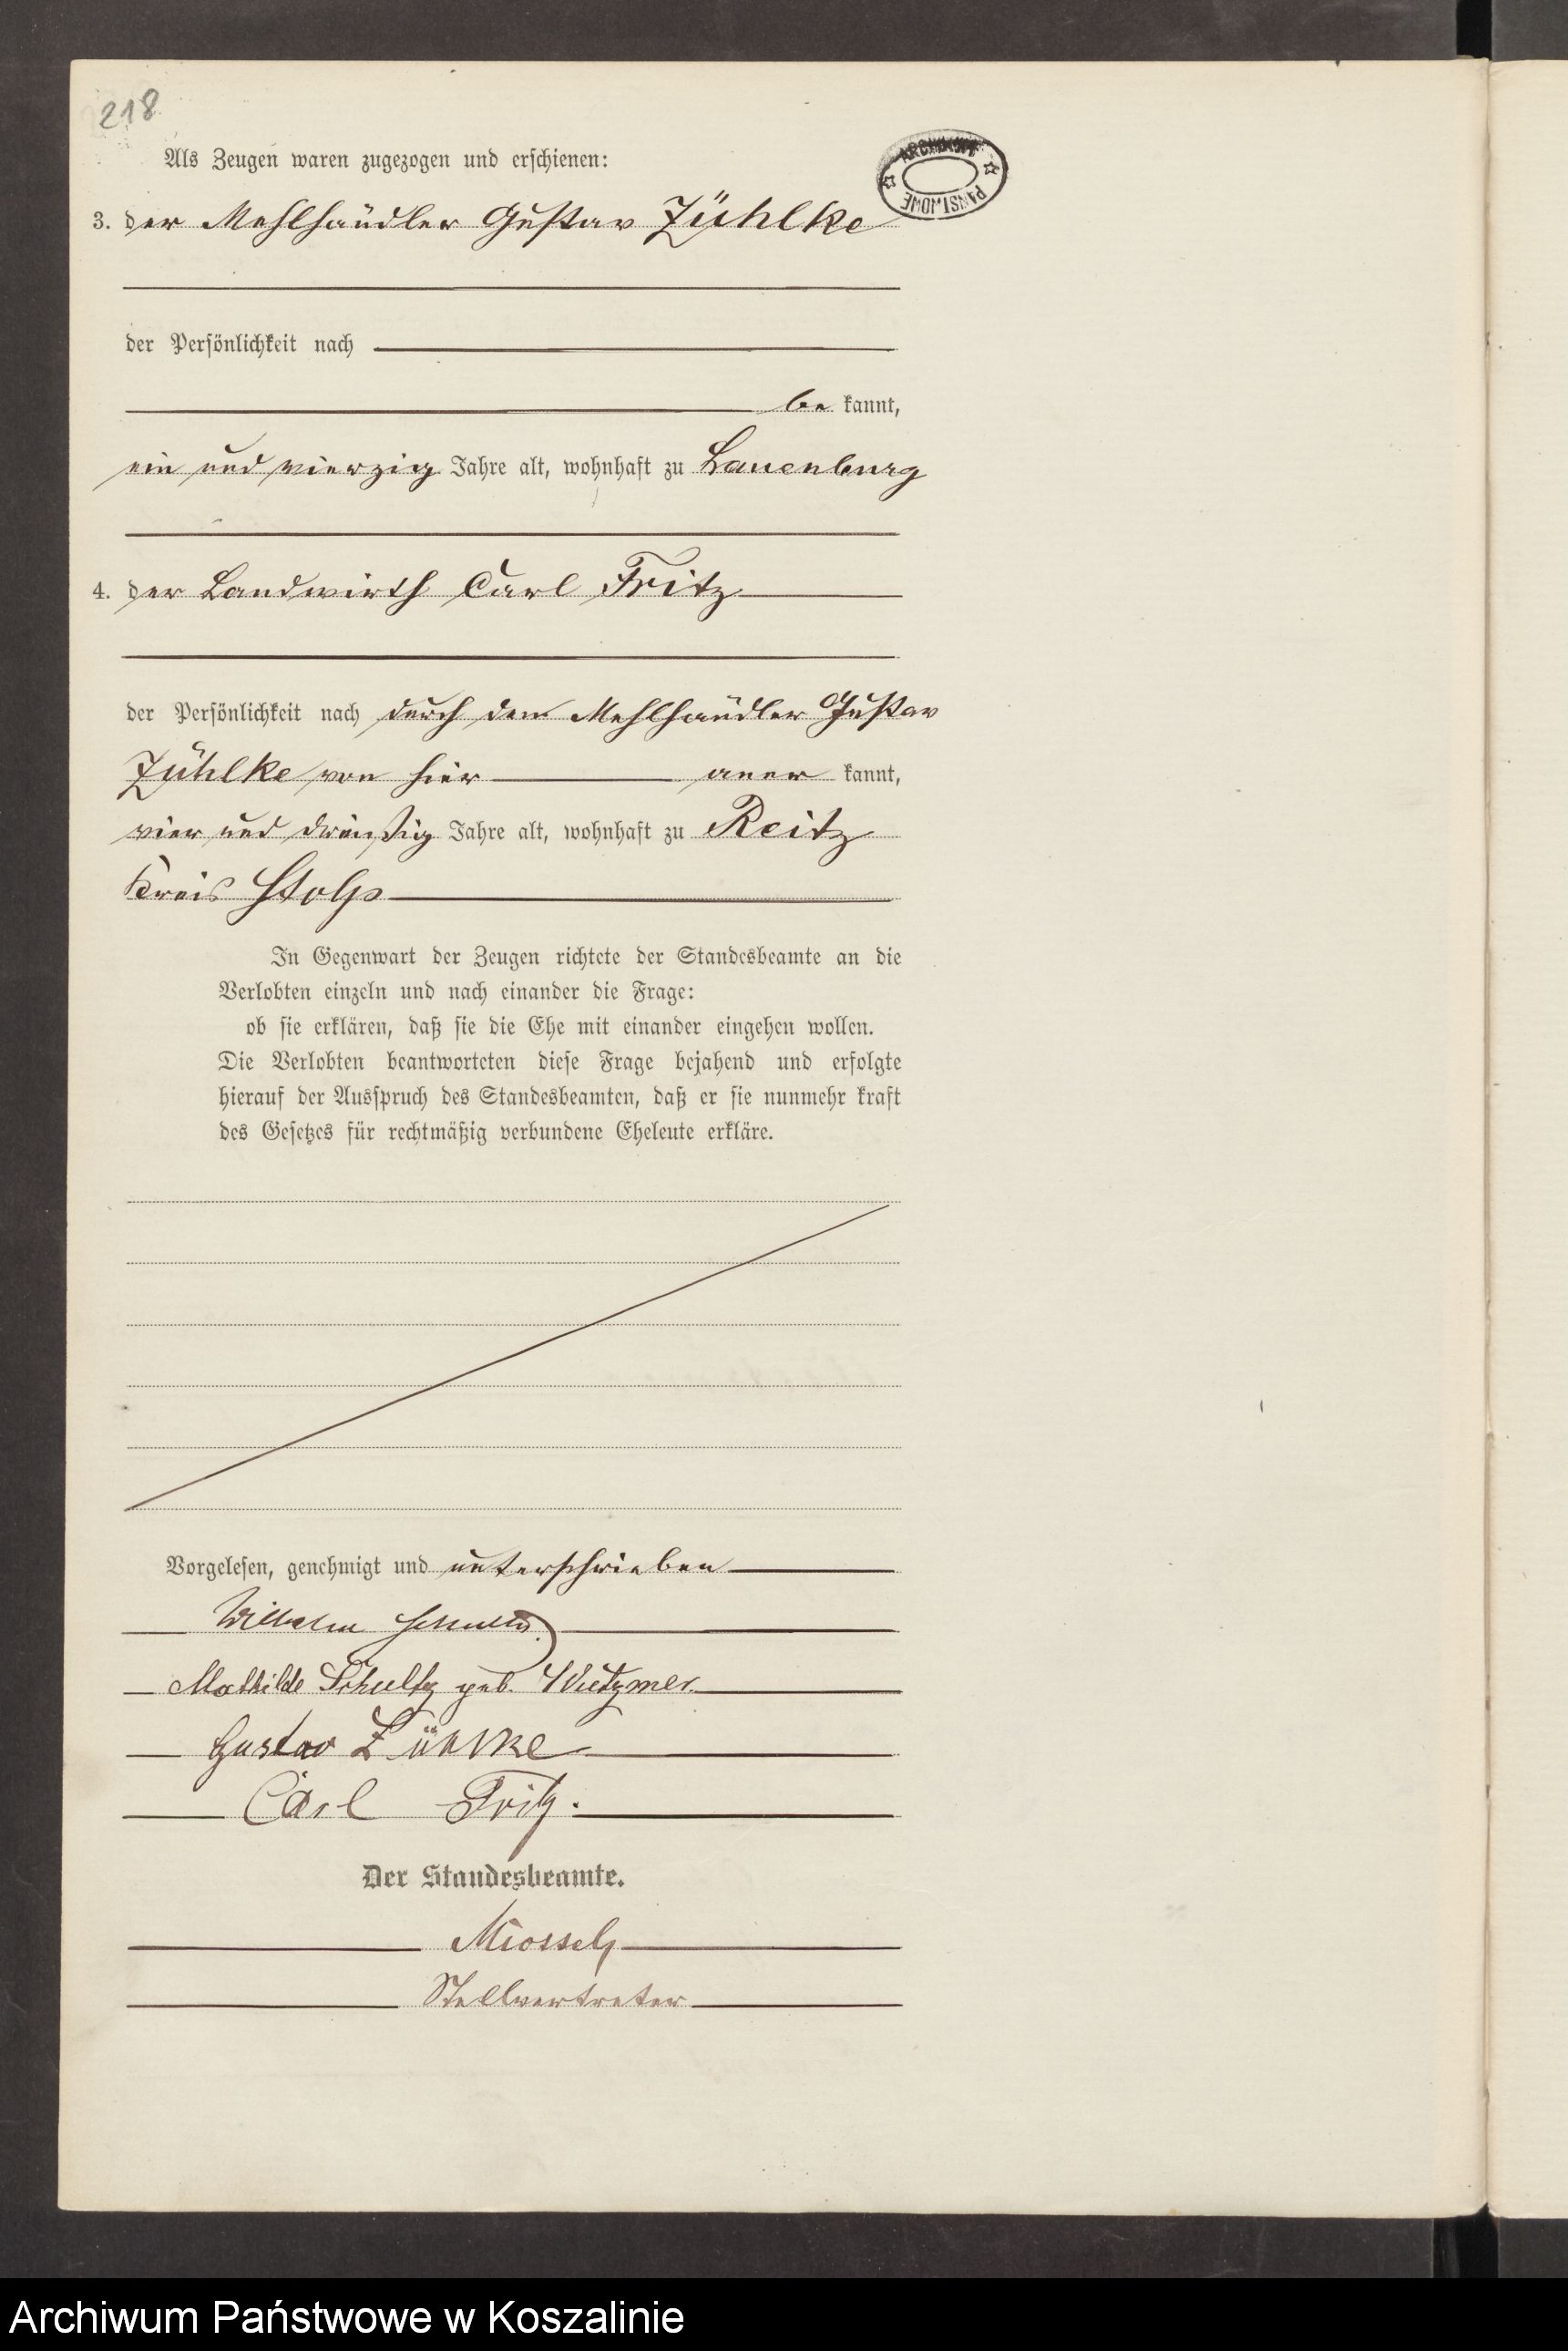 218
Als Zeugen waren zugezogen und erschienen:
ARCHIWUM PAŃSTWOWE
3. der Mehlhändler Gustav Zühlke
der Persönlichkeit nach
be kannt,
ein und vierzig Jahre alt, wohnhaft zu Lauenburg
4. der Landwirth Carl Fritz
der Persönlichkeit nach durch den Mehlhändler Gustav
Zühlke von hier aner kannt,
vier und dreißig Jahre alt, wohnhaft zu Reitz
Kreis Stolp
In Gegenwart der Zeugen richtete der Standesbeamte an die
Verlobten einzeln und nach einander die Frage:
ob sie erklären, daß sie die Ehe mit einander eingehen wollen.
Die Verlobten beantworteten diese Frage bejahend und erfolgte
hierauf der Ausspruch des Standesbeamten, daß er sie nunmehr kraft
des Gesetzes für rechtmäßig verbundene Eheleute erkläre.
Vorgelesen, genehmigt und unterschrieben
Wilhelm Schultz
Mathilde Schultz geb. Wutzmer
Gustav Zühlke
Carl Fritz.
Der Standesbeamte.
Stellvertreter
Archiwum Państwowe w Koszalinie